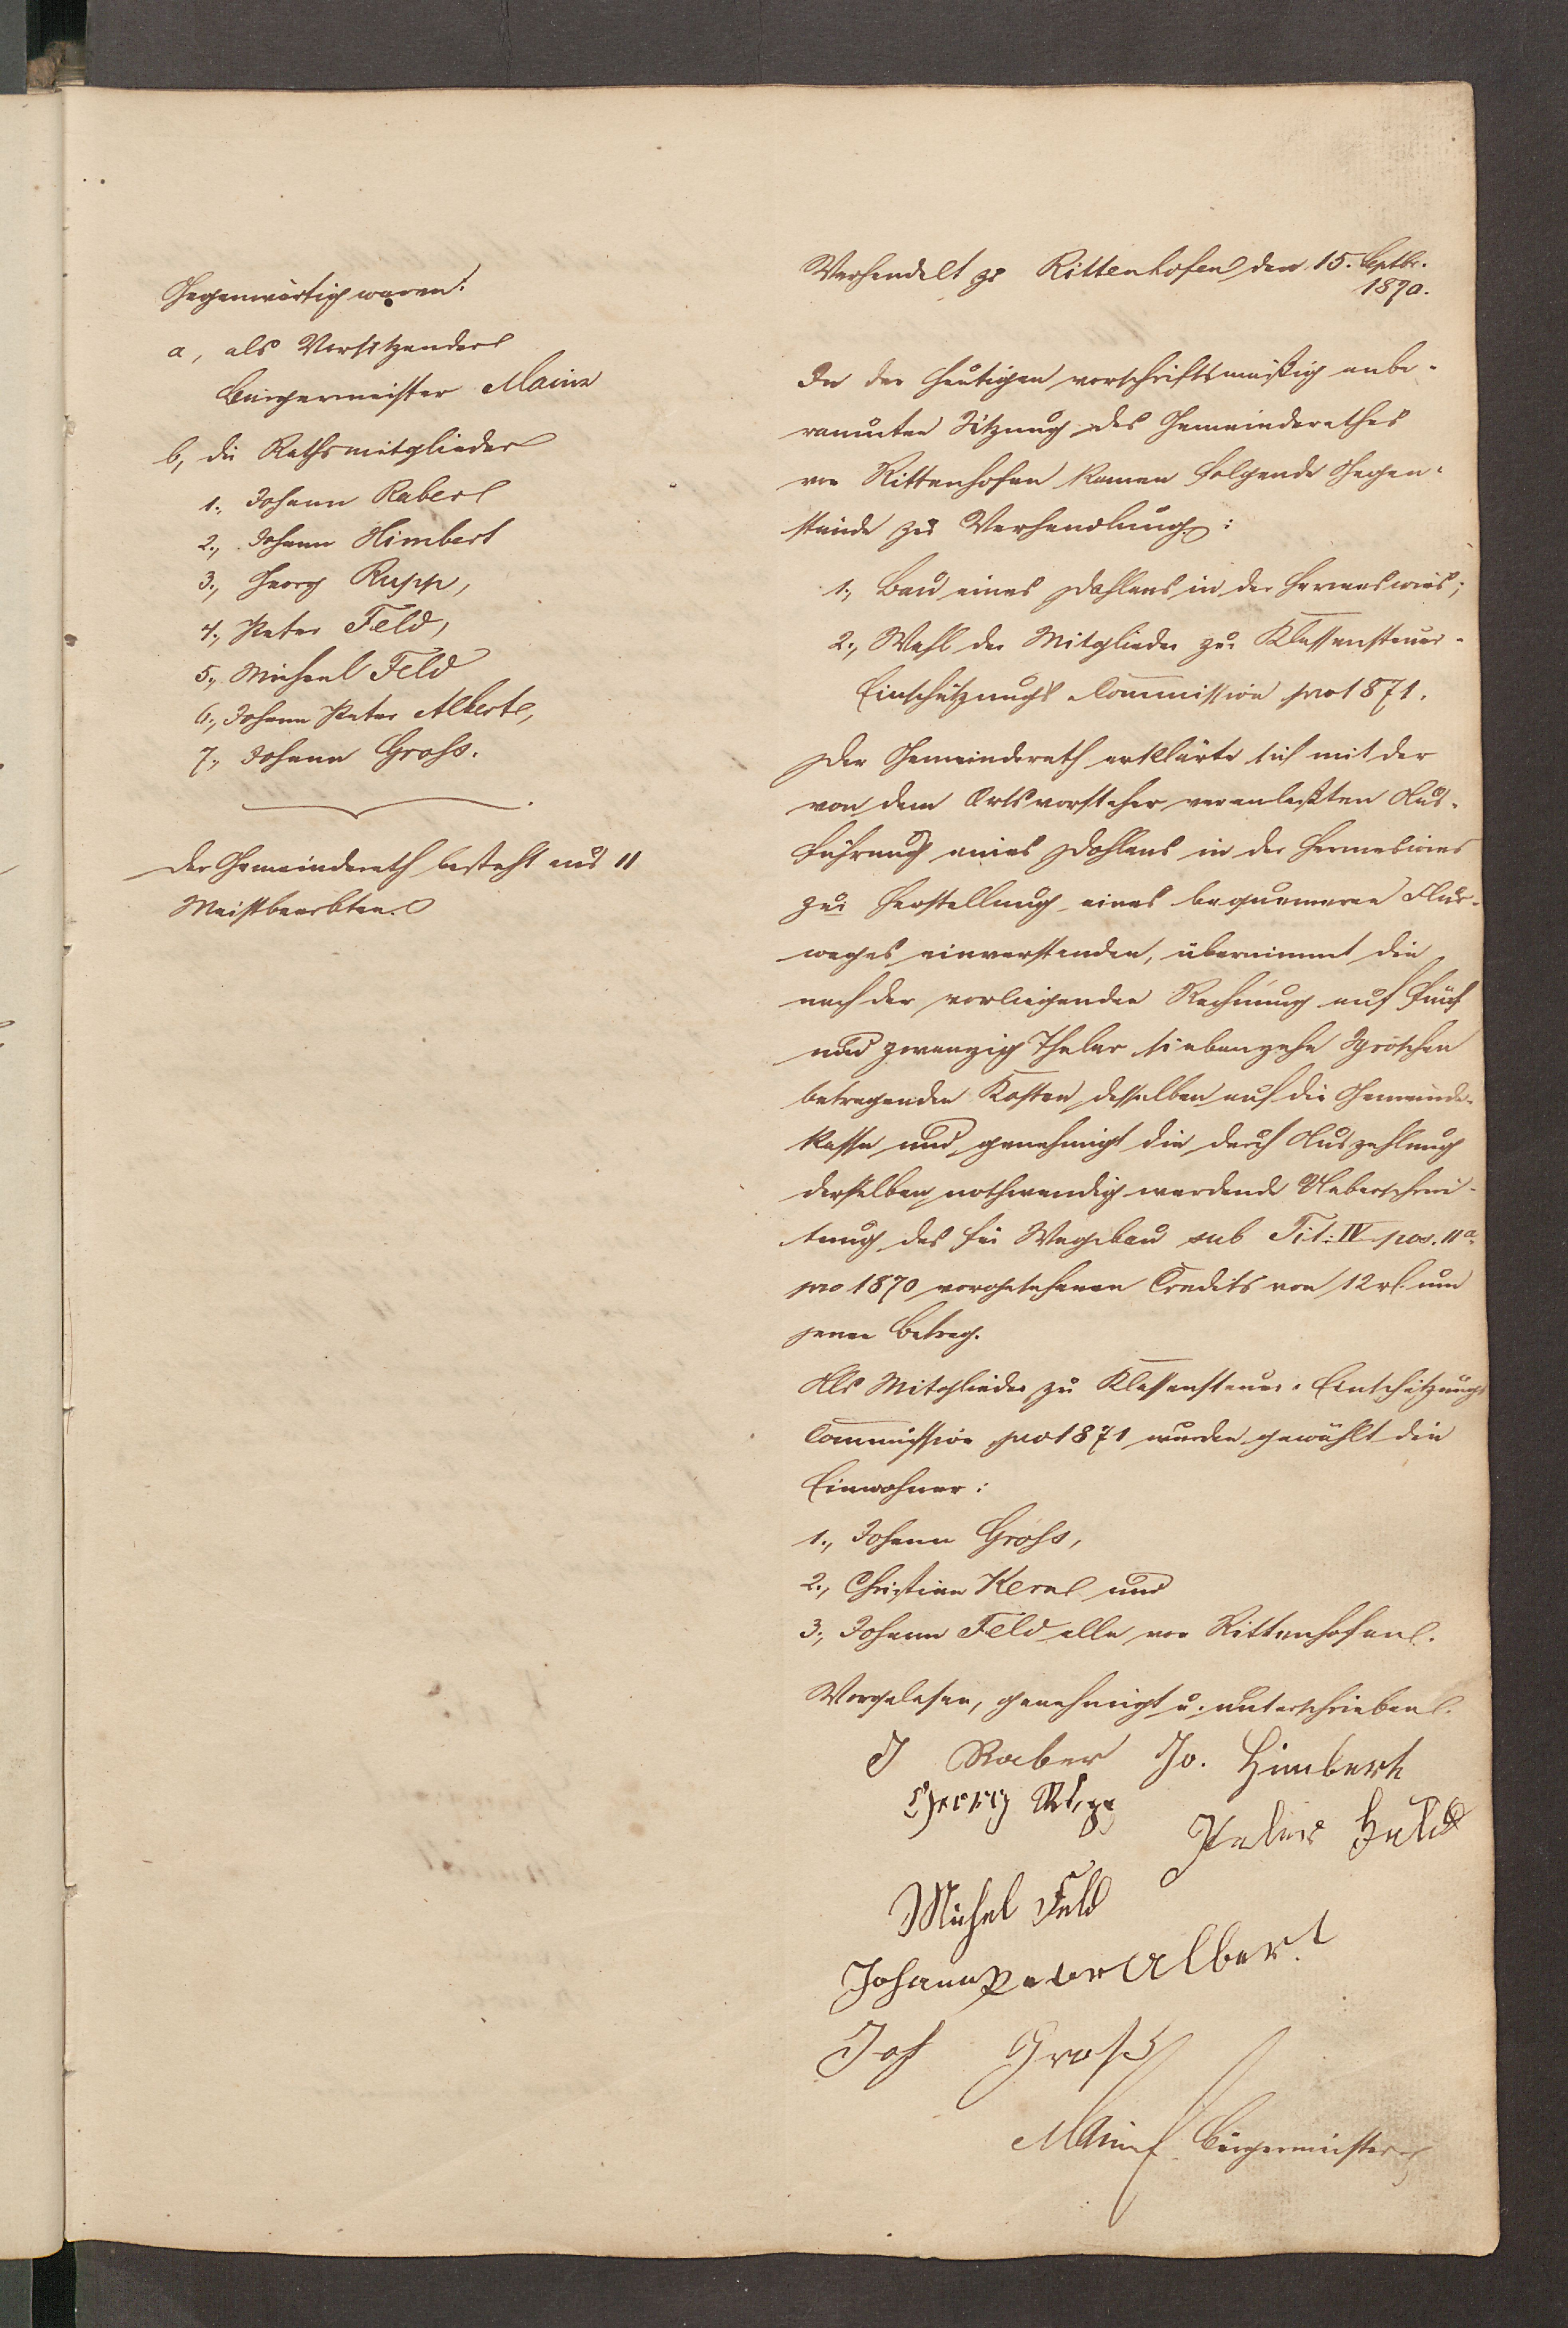 Gegenwärtig waren:
a, als Vorsitzender
Bürgermeister Mainz
b, die Rathsmitglieder
1., Johann Raber
2., Johann Himbert
3., Georg Rupp,
4., Peter Feld,
5., Michael Feld
6., Johann Peter Albert,
7., Johann Groß.
Der Gemeinderath besteht aus 11
Meistbeerbten.
Verhandelt zu Rittenhofen den 15. Septbr.
1870.
In der heutigen vorschriftsmäßig anbe-
raumten Sitzung des Gemeinderathes
von Rittenhofen kamen folgende Gegen-
stände zur Verhandlung:
1., Bau eines Dohlens in der Hermeswies;
2., Wahl der Mitglieder zur Klassensteuer-
Einschätzungs Commission pro 1871.
Der Gemeinderath erklärte sich mit der
von dem Ortsvorsteher veranlaßten Aus-
führung eines Dohlens in der Hermeswies
zur Herstellung eines bequemeren Flur-
weges einverstanden, übernimmt die
nach der vorliegenden Rechnung auf fünf
und zwanzig Thaler siebenzehn Sgroschen
betragenden Kosten desselben auf die Gemeinde-
kasse und genehmigt die durch Auszahlung
derselben nothwendig werdende Ueberschrei-
tung des für Wegebau sub Tit: IV pos. 11a
pro 1870 vorgesehenen Credits von 12 rl. um
jenen Betrag.
Als Mitglieder zur Klassensteuer-Einschätzungs
Commission pro 1871 wurden gewählt die
Einwohner:
1., Johann Groß,
2., Christian Kern und
3., Johann Feld alle von Rittenhofen.
Vorgelesen, genehmigt u. unterschrieben.
J Raber Jo. Himbert
Georg Rupp
Peter Feld
Michel Feld
Johann Peter Albert
Joh Groß
Mainz Bürgermeister